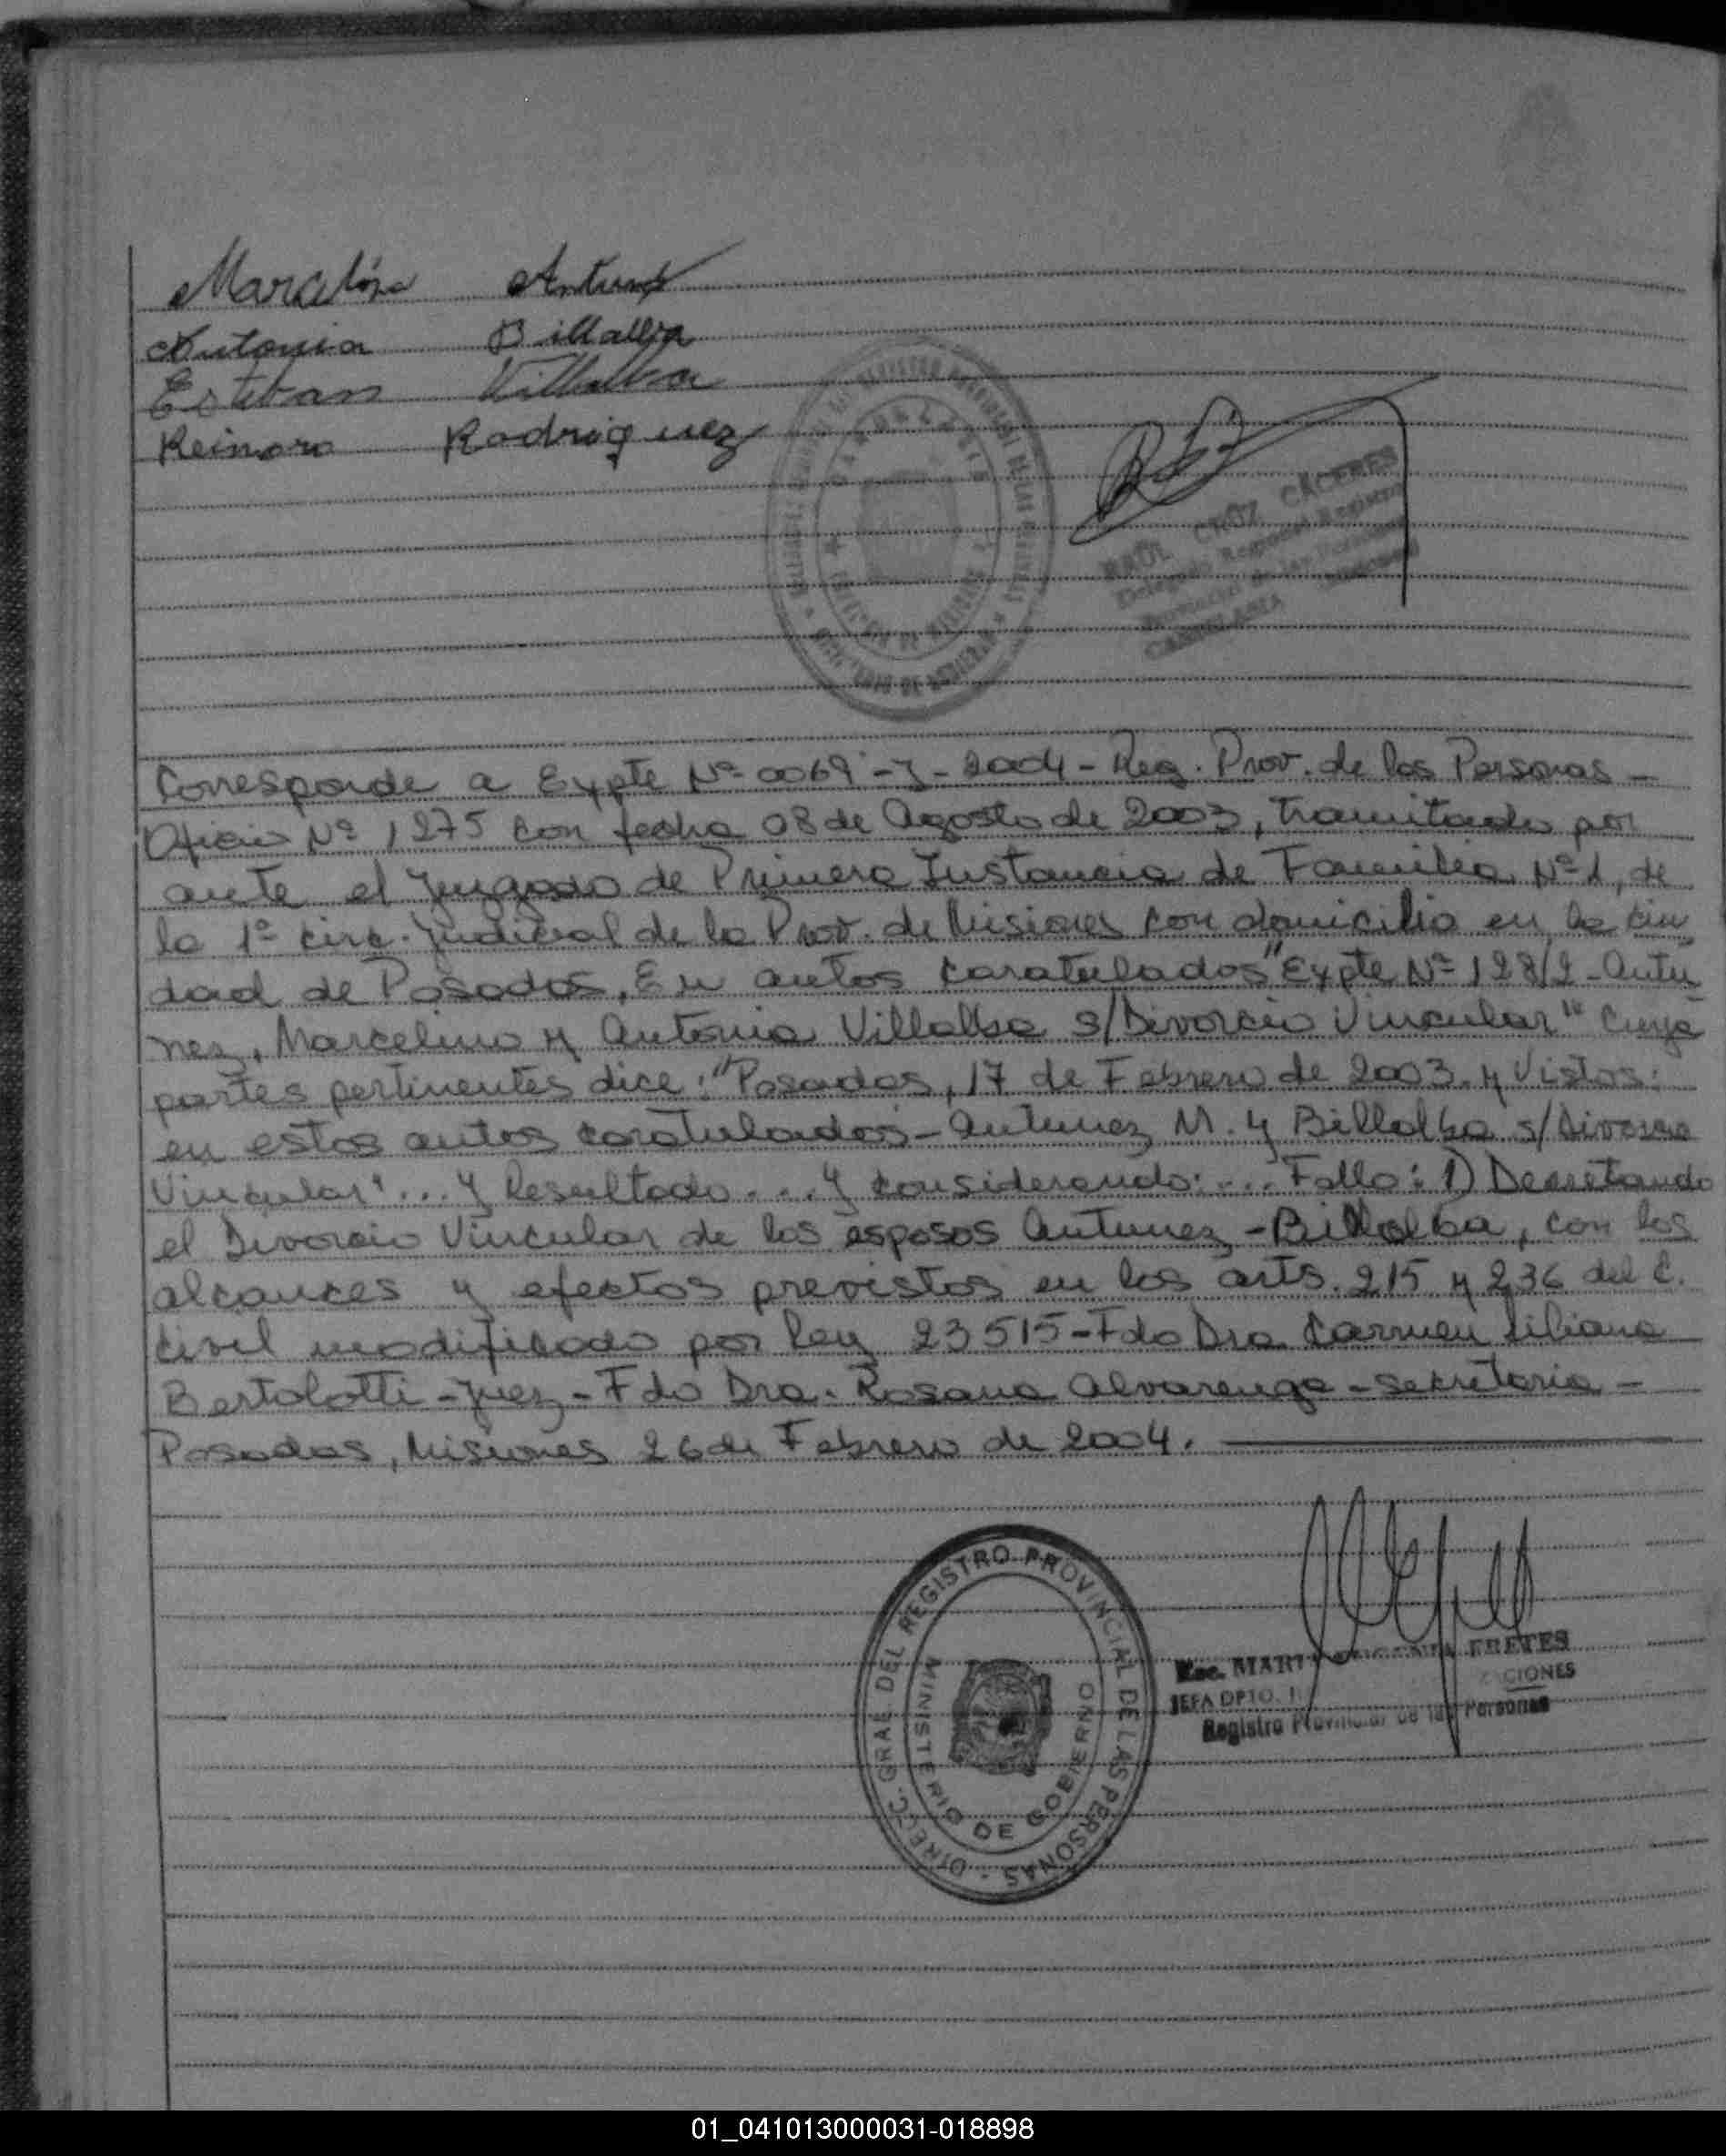 Antonia Billalba
Esteban Villalba
Reinoro Rodriguez
RAÚL CRUZ CÁCERES
Delegado Regional Registro
Provincial de las Personas
CANDELARIA
Corresponde a Expte Nº 0069-J-2004-Reg. Prov. de las Personas-
Oficio Nº 1275 con fecha 08 de Agosto de 2003, tramitado por
ante el Juzgado de Primera Instancia de Familia Nº 1, de
la 1º circ. Judicial de la Prov. de Misiones con domicilio en la ciu
dad de Posadas, En autos caratulados "Expte Nº 128/2-Antu
nez, Marcelino y Antonia Villalba s/Divorcio Vincular" Cuya
partes pertinentes dice: "Posadas, 17 de Febrero de 2003. y Vistos:
en estos autos caratulados-Antunez M. y Billalba s/Divorcio
Vincular"... y Resultado.... y considerando:... Fallo: 1) Decretando
el Divorcio Vincular de los esposos Antunez-Billalba, con los
alcances y efectos previstos en los arts. 215 y 236 del C.
Civil modificado por ley 23515-Fdo Dra Carmen Liliana
Bertolotti-Juez-Fdo Dra. Rosana Alvarenga-secretaria-
Posadas, Misiones 26 de Febrero de 2004.
DIRECC. GRAL DEL REGISTRO PROVINCIAL DE LAS PERSONAS -
MINISTERIO DE GOBIERNO
Esc. FRETES
JEFA DPTO.
Registro Provincial de las Personas
01_041013000031-018898